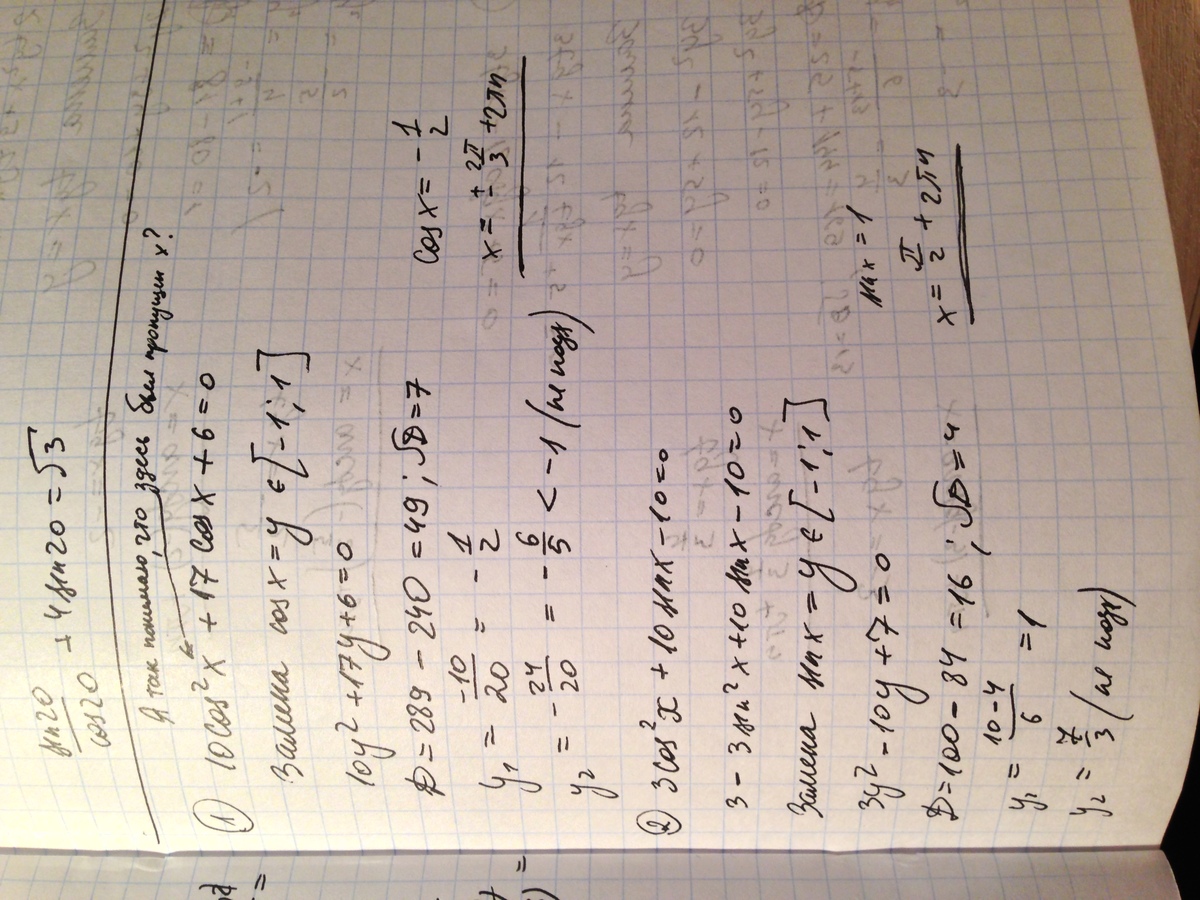 sin20/cos20 + 4 sin20 = √3
Я так понимаю, что здесь был пропущен x?
① 10cos²x + 17cosx + 6 = 0
Замена cosx = y ∈ [-1; 1]
10y² + 17y + 6 = 0
D = 289 - 240 = 49; √D = 7
y₁ = -10/20 = -1/2
y₂ = -24/20 = -6/5 < -1 (не подх)
cosx = -1/2
x = ±2π/3 + 2πn
② 3cos²x + 10sinx - 10 = 0
3 - 3sin²x + 10sinx - 10 = 0
Замена sinx = y ∈ [-1; 1]
3y² - 10y + 7 = 0
D = 100 - 84 = 16; √D = 4
y₁ = (10-4)/6 = 1
y₂ = 7/3 (не подх)
sinx = 1
x = π/2 + 2πn